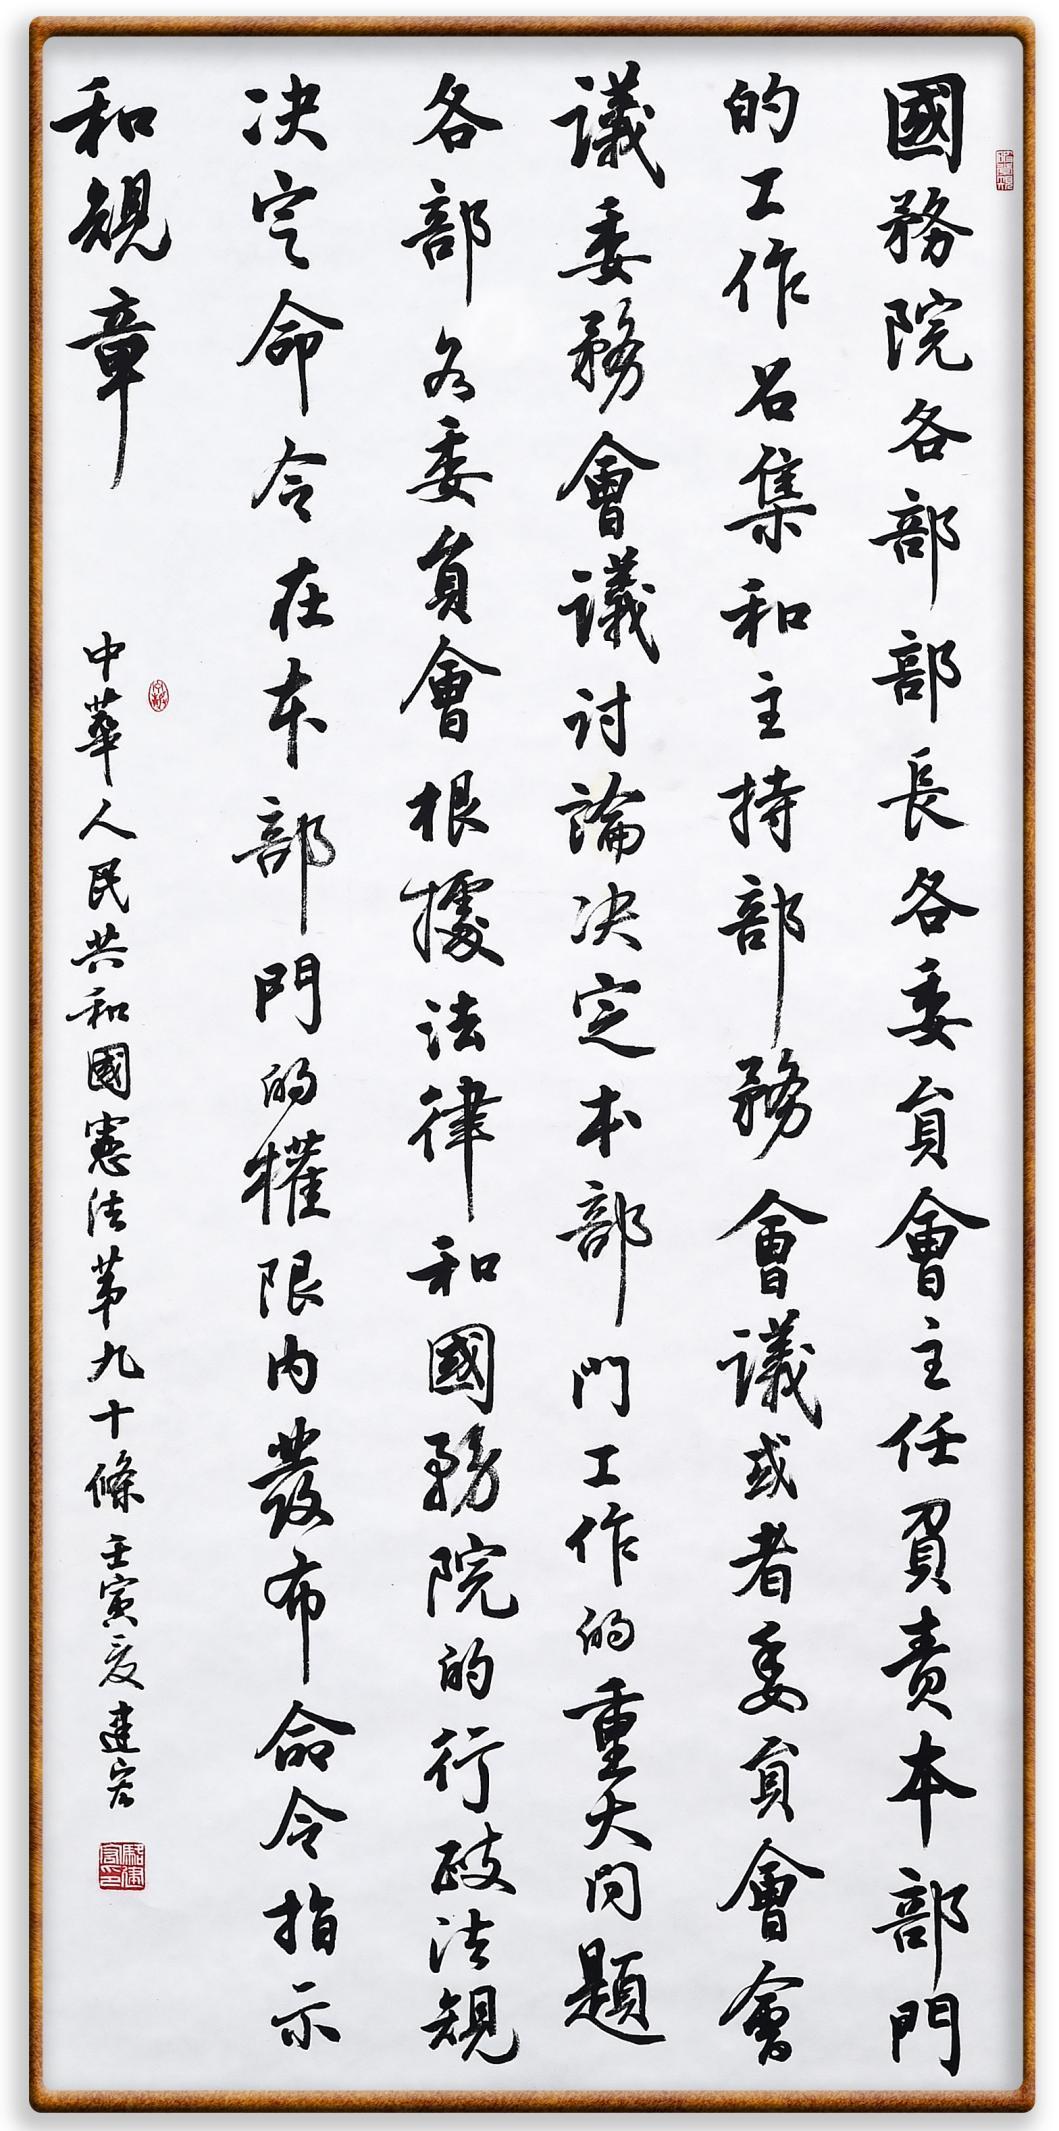 國務院各部部長各委員會主任負責本部門
的工作召集和主持部務會議或者委員會會
議委務會議討論决定本部門工作的重大問題
各部各委員會根據法律和國務院的行政法規
决定命令在本部門的權限内發布命令指示
和規章
中華人民共和國憲法第九十條壬寅夏建宏